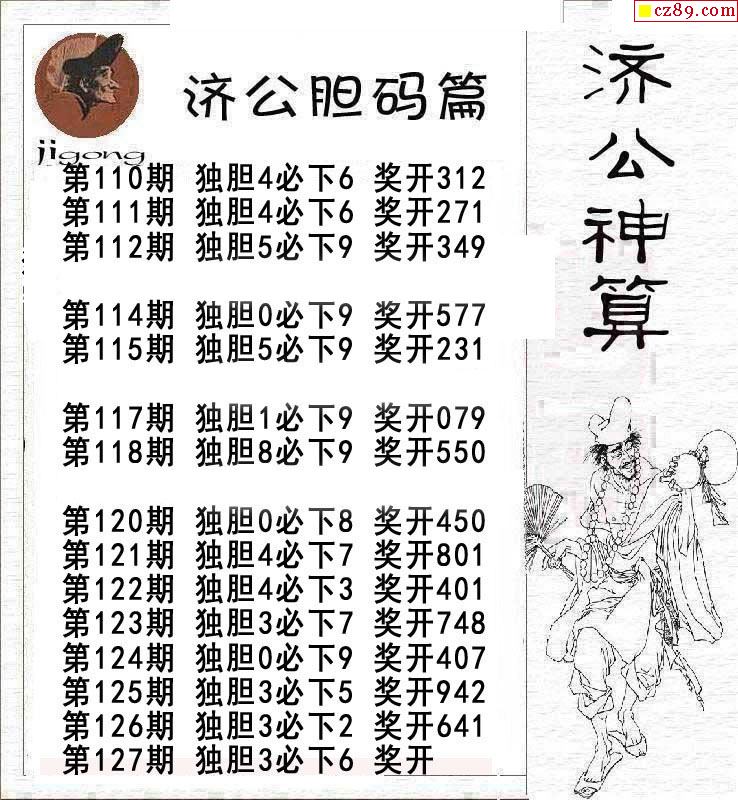 cz89.com
济公胆码篇
jigong
第110期 独胆4必下6 奖开312
第111期 独胆4必下6 奖开271
第112期 独胆5必下9 奖开349
第114期 独胆0必下9 奖开577
第115期 独胆5必下9 奖开231
第117期 独胆1必下9 奖开079
第118期 独胆8必下9 奖开550
第120期 独胆0必下8 奖开450
第121期 独胆4必下7 奖开801
第122期 独胆4必下3 奖开401
第123期 独胆3必下7 奖开748
第124期 独胆0必下9 奖开407
第125期 独胆3必下5 奖开942
第126期 独胆3必下2 奖开641
第127期 独胆3必下6 奖开
济公神算